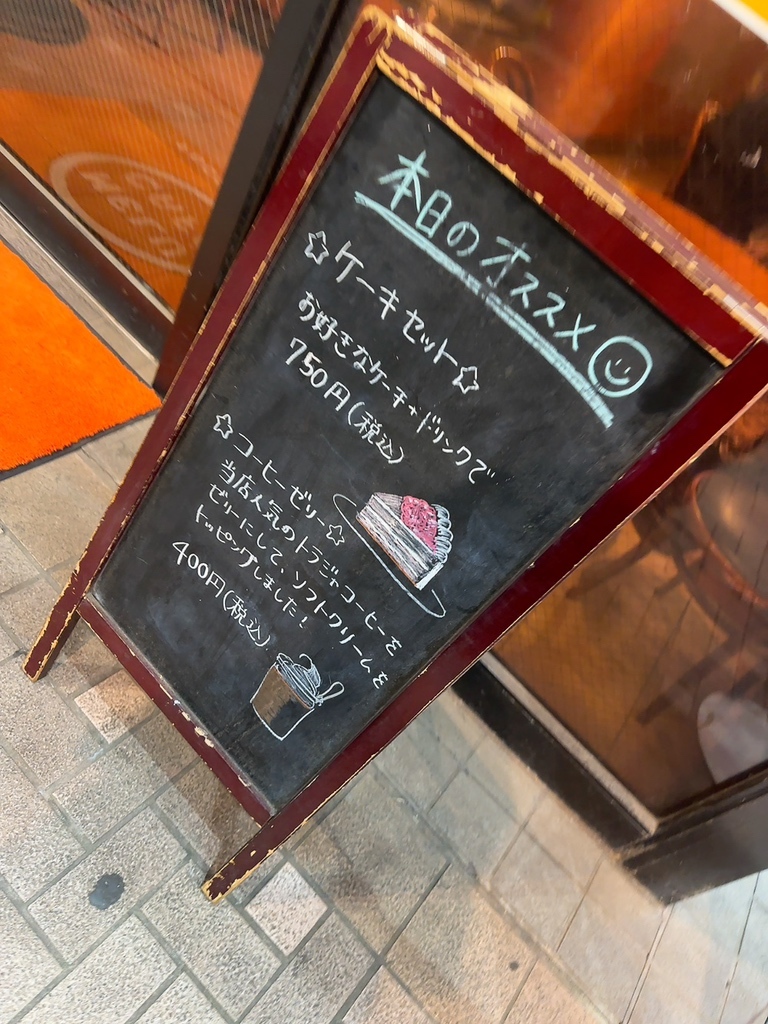 本日のオススメ
☆ケーキセット☆
お好きなケーキ+ドリンクで
750円(税込)
☆コーヒーゼリー☆
当店人気のトラジャコーヒーを
ゼリーにして、ソフトクリームを
トッピングしました!
400円(税込)